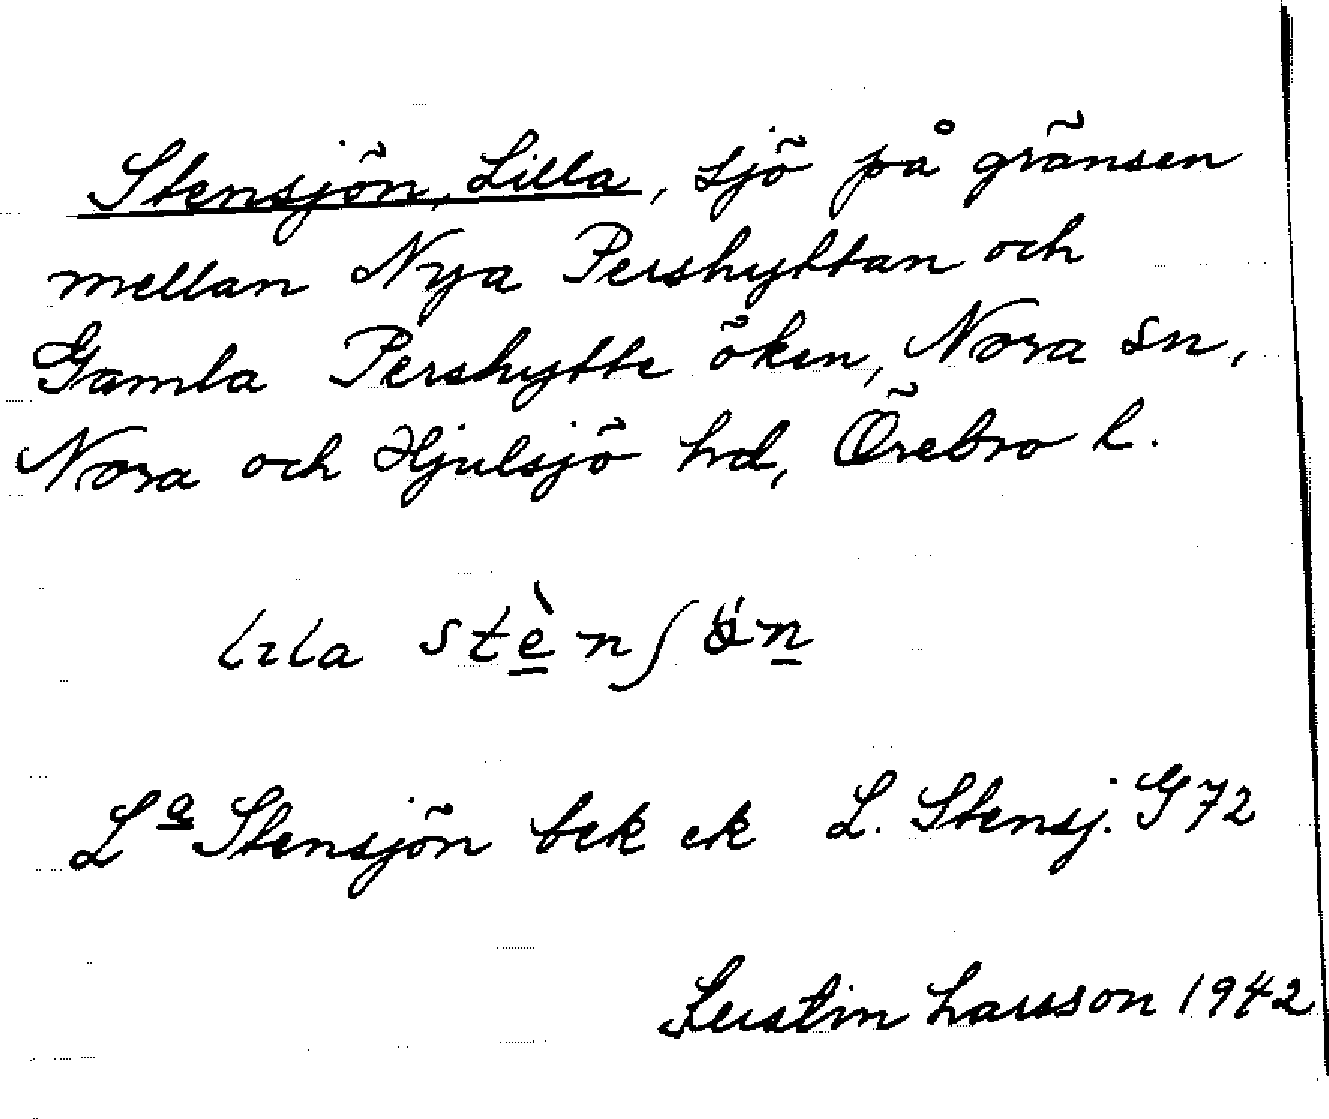 Stensjön, Lilla, sjö på gränsen
mellan Nya Pershyttan och
Gamla Pershytte öken, Nora sn,
Nora och Hjulsjö hd, Örebro l.
lila stèn ʃön
Lª Stensjön bek ek L. Stensj. G72
Kerstin Larsson 1942